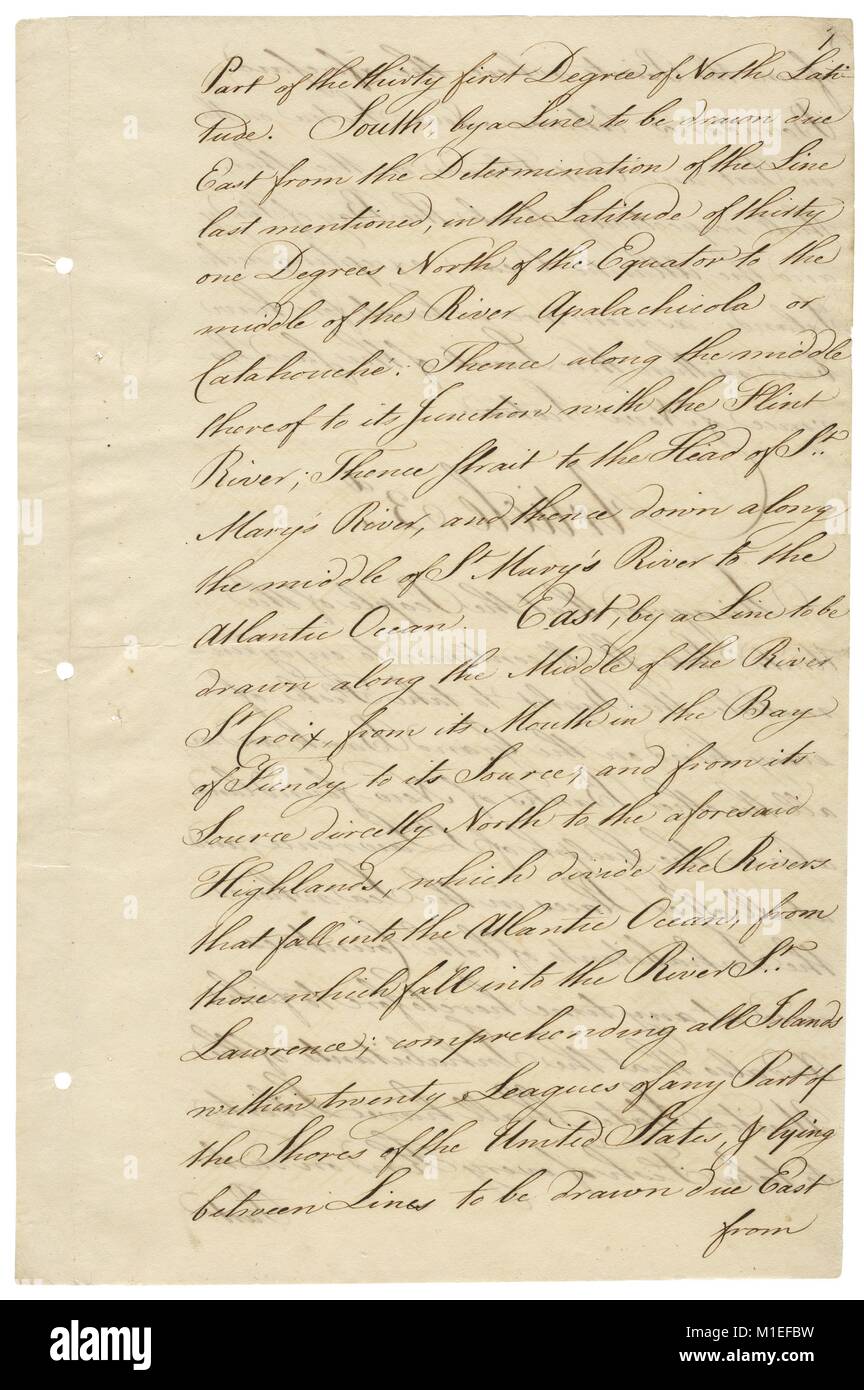 7
Part of the thirty first Degree of North Lati-
tude. South, by a Line to be drawn due
East from the Determination of the Line
last mentioned, in the Latitude of thirty
one Degrees North of the Equator to the
middle of the River Apalachicola or
Catahouche. Thence along the middle
thereof to its Junction with the Flint
River; Thence strait to the Head of St.
Mary's River, and thence down along
the middle of St. Mary's River to the
Atlantic Ocean. East, by a Line to be
drawn along the Middle of the River
St. Croix, from its Mouth in the Bay
of Fundy to its Source; and from its
Source directly North to the aforesaid
Highlands, which divide the Rivers
that fall into the Atlantic Ocean, from
those which fall into the River St.
Lawrence; comprehending all Islands
within twenty Leagues of any Part of
the Shores of the United States, & lying
between Lines to be drawn due East
from
alamy
Image ID: M1EFBW
www.alamy.com